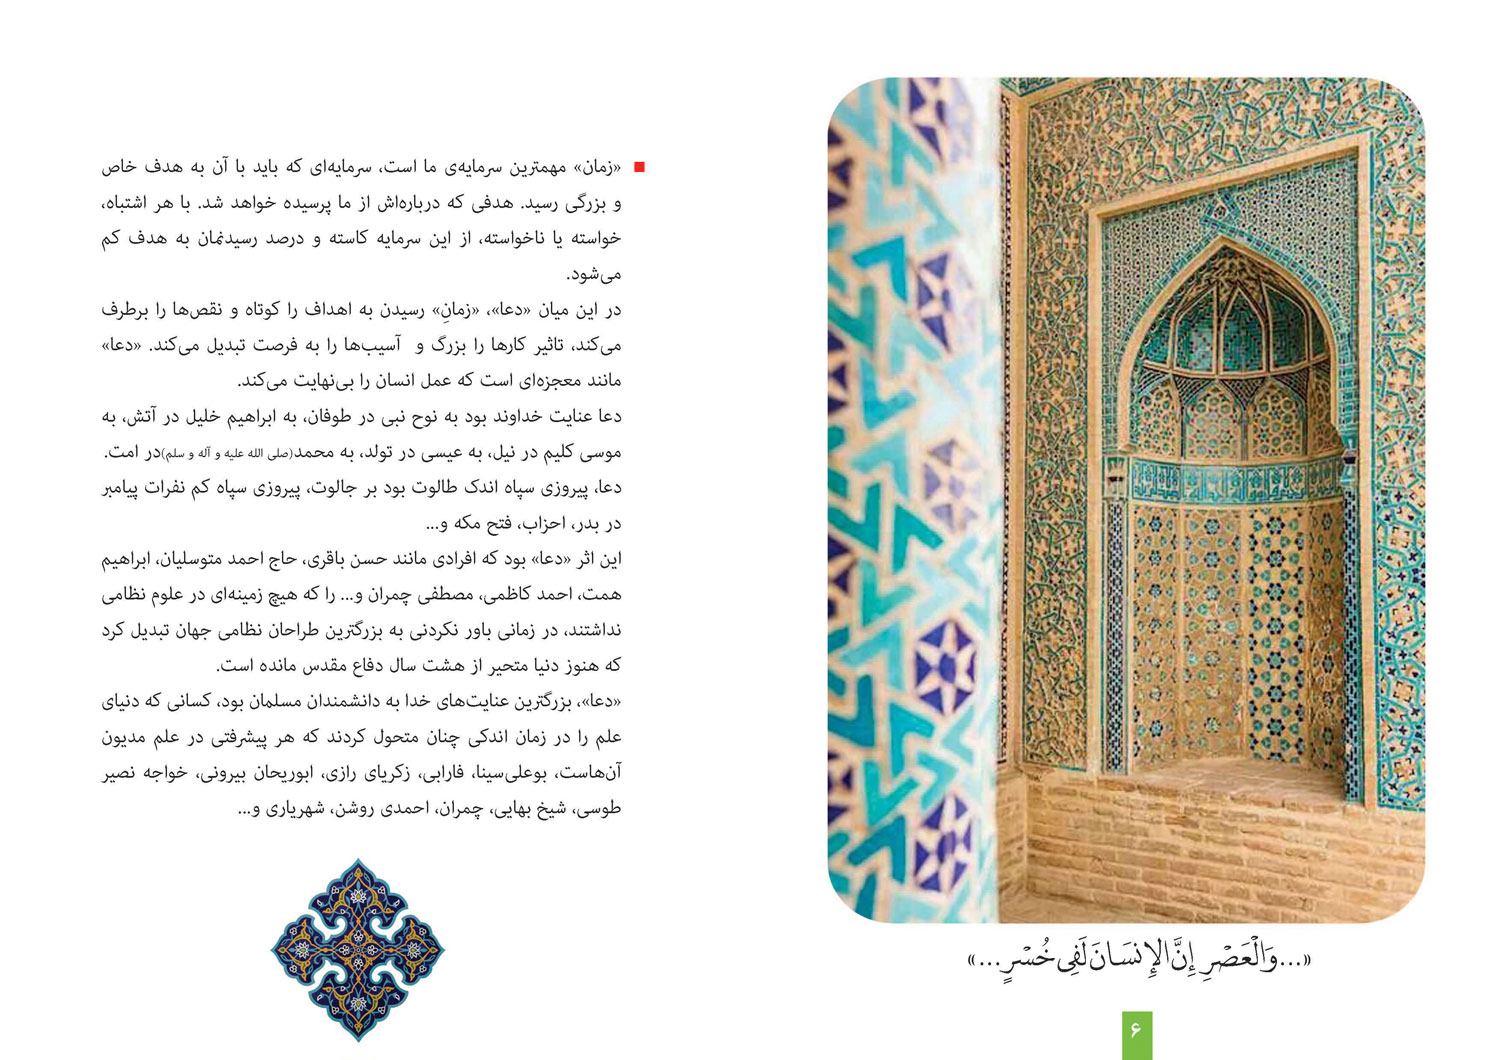 «...وَالْعَصْرِ إِنَّ الإِنسَانَ لَفِی خُسْرٍ...»
۶
«زمان» مهمترین سرمایه‌ی ما است، سرمایه‌ای که باید با آن به هدف خاص
و بزرگی رسید. هدفی که درباره‌اش از ما پرسیده خواهد شد. با هر اشتباه،
خواسته یا ناخواسته، از این سرمایه کاسته و درصد رسیدنمان به هدف کم
می‌شود.
در این میان «دعا»، «زمانِ» رسیدن به اهداف را کوتاه و نقص‌ها را برطرف
می‌کند، تاثیر کارها را بزرگ و آسیب‌ها را به فرصت تبدیل می‌کند. «دعا»
مانند معجزه‌ای است که عمل انسان را بی‌نهایت می‌کند.
دعا عنایت خداوند بود به نوح نبی در طوفان، به ابراهیم خلیل در آتش، به
موسی کلیم در نیل، به عیسی در تولد، به محمد(صلی الله علیه و آله و سلم)در امت.
دعا، پیروزی سپاه اندک طالوت بود بر جالوت، پیروزی سپاه کم نفرات پیامبر
در بدر، احزاب، فتح مکه و...
این اثر «دعا» بود که افرادی مانند حسن باقری، حاج احمد متوسلیان، ابراهیم
همت، احمد کاظمی، مصطفی چمران و... را که هیچ زمینه‌ای در علوم نظامی
نداشتند، در زمانی باور نکردنی به بزرگترین طراحان نظامی جهان تبدیل کرد
که هنوز دنیا متحیر از هشت سال دفاع مقدس مانده است.
«دعا»، بزرگترین عنایت‌های خدا به دانشمندان مسلمان بود، کسانی که دنیای
علم را در زمان اندکی چنان متحول کردند که هر پیشرفتی در علم مدیون
آن‌هاست، بوعلی‌سینا، فارابی، زکریای رازی، ابوریحان بیرونی، خواجه نصیر
طوسی، شیخ بهایی، چمران، احمدی روشن، شهریاری و...